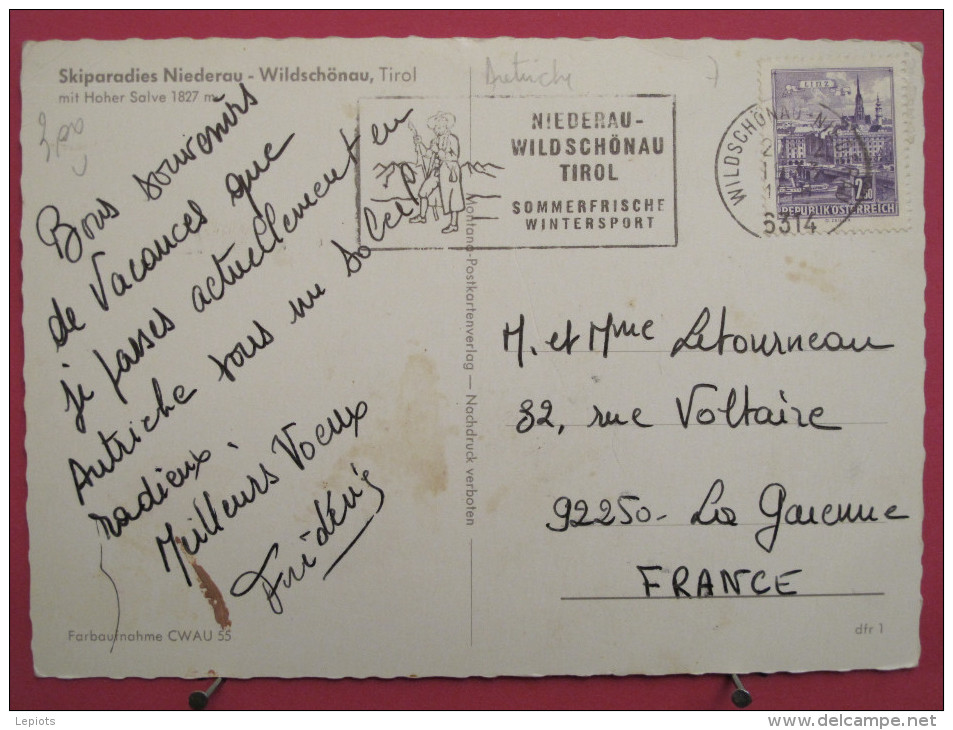 Skiparadies Niederau - Wildschönau, Tirol
mit Hoher Salve 1827 m
Autriche
7
NIEDERAU-
WILDSCHÖNAU
TIROL
SOMMERFRISCHE
WINTERSPORT
WILDSCHÖNAU-NIEDERAU
6314
LINZ
2.50
REPUBLIK ÖSTERREICH
Bons souvenirs
de Vacances que
je passes actuellement en
Autriche sous un soleil
radieux.
Meilleurs Voeux
Montana-Postkartenverlag — Nachdruck verboten
M. et Mme Letourneau
32, rue Voltaire
92250 - La Garenne
FRANCE
Farbaufnahme CWAU 55
dfr 1
Lepiots
delcampe.net